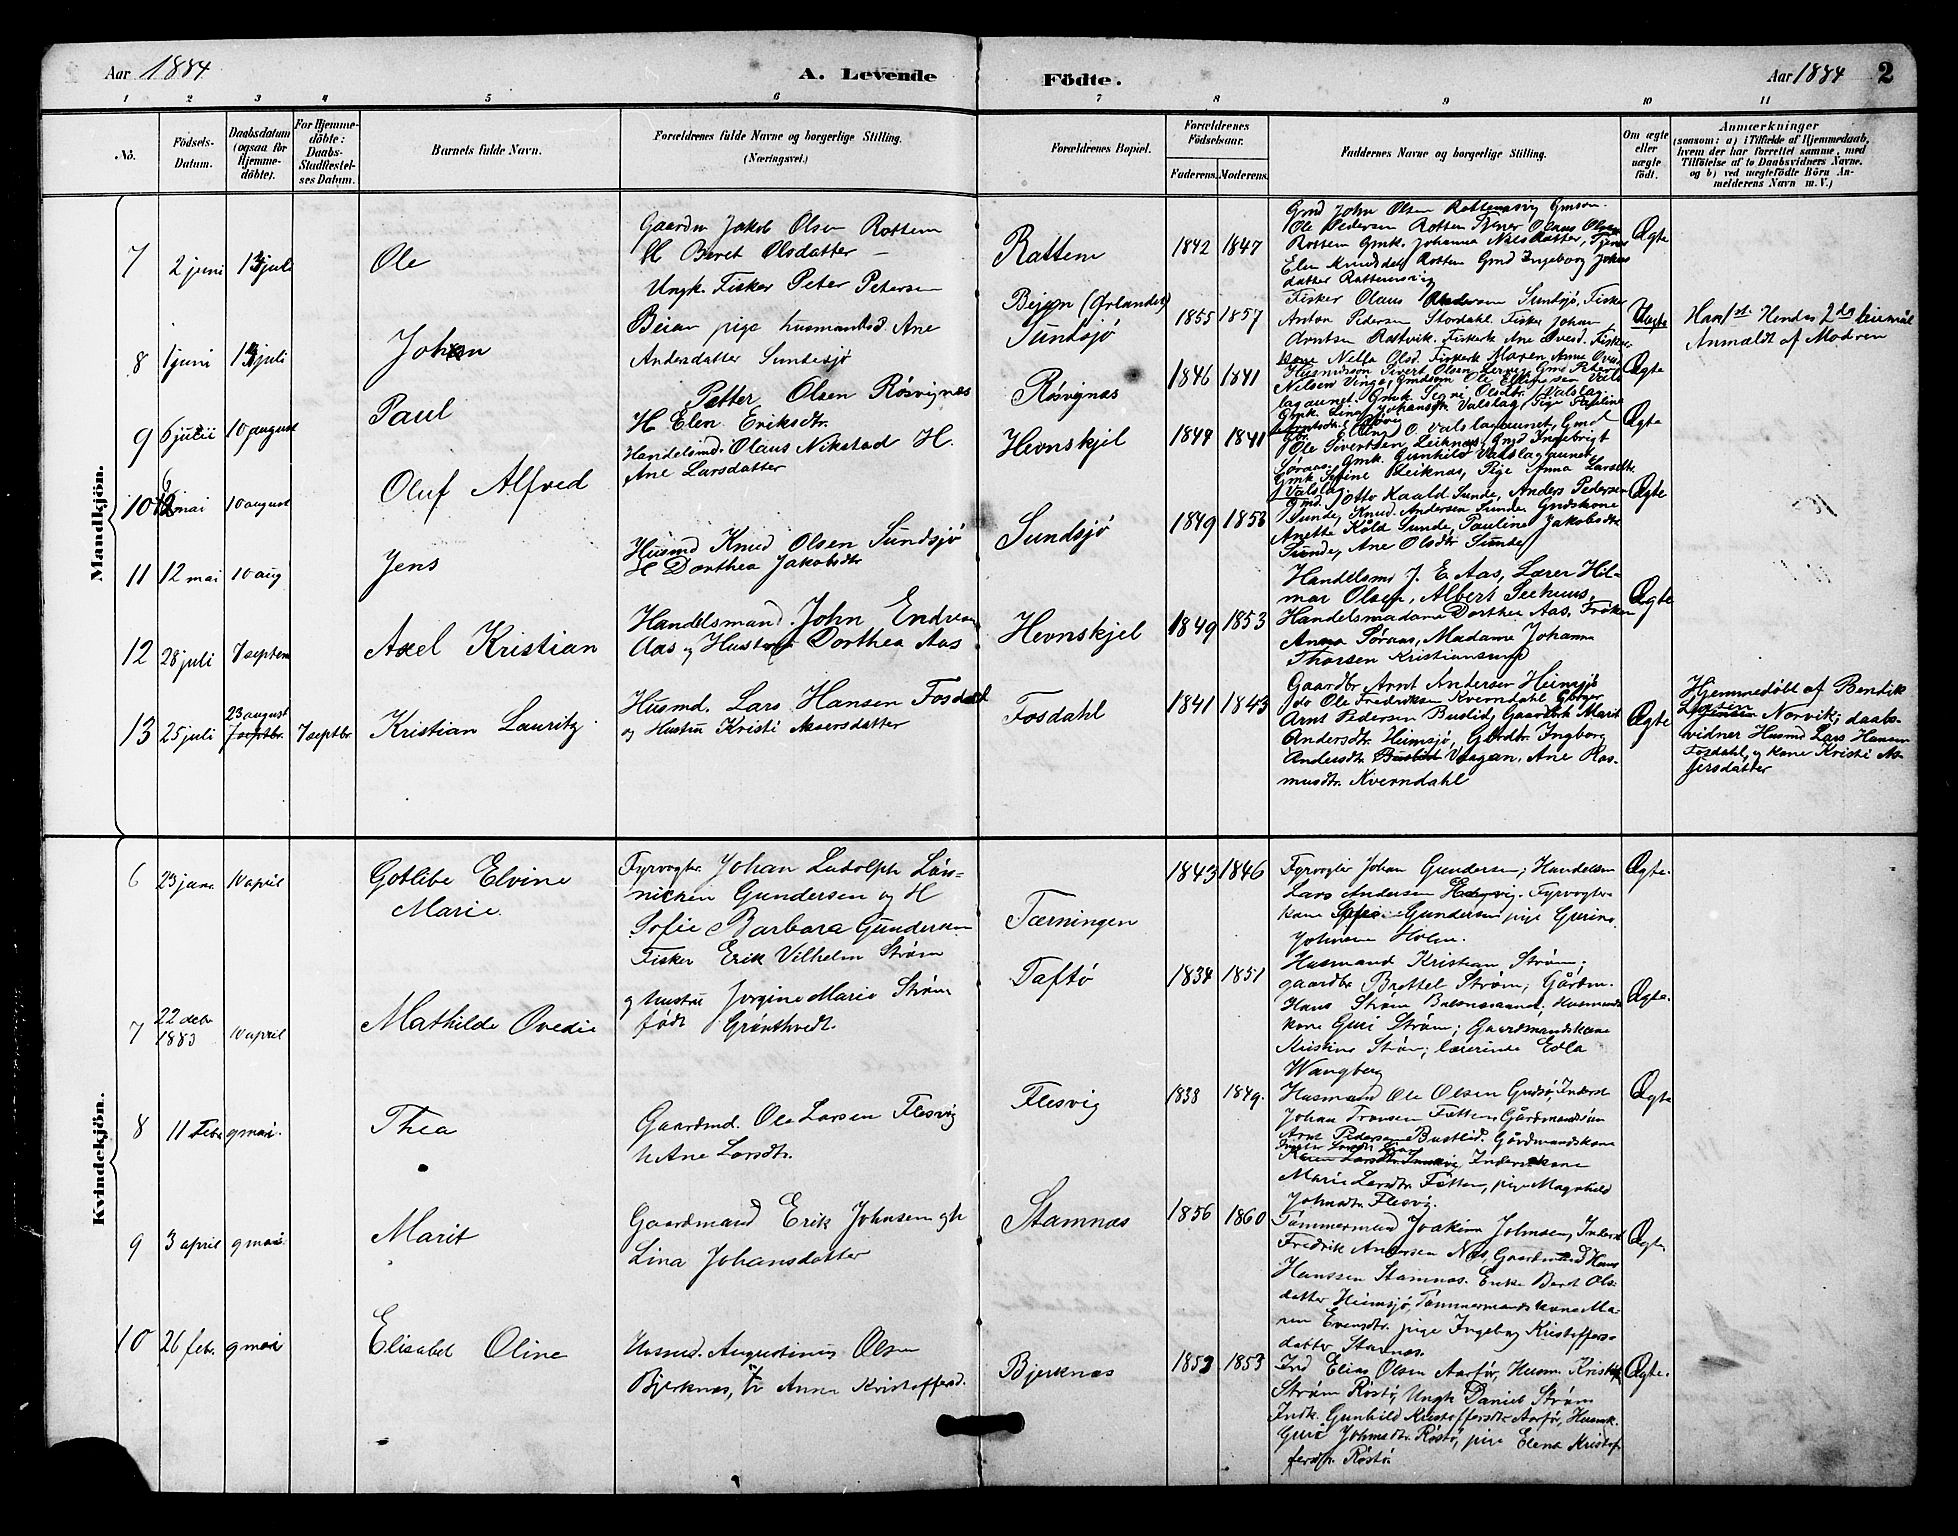 Aar 1884
A. Levende
Födte.
Aar 1884
2
1 2 3 4 5 6 7 8 9 10 11
No.
Födsels-
Datum.
Daabsdatum
(ogsaa for
Hjemme-
döbte).
For Hjemme-
döbte:
Daabs-
Stadfæstel-
ses Datum.
Barnets fulde Navn.
Forældrenes fulde Navne og borgerlige Stilling.
(Næringsvei.)
Forældrenes Bopæl.
Forældrenes
Födselsaar.
Faderens. Moderens.
Faddernes Navne og borgerlige Stilling.
Om ægte
eller
uægte
födt.
Anmærkninger
(saasom: a) i Tilfælde af Hjemmedaab,
hvem der har forrettet samme, med
Tilföielse af to Daabsvidners Navne.
og b) ved uægtefödte Börn An-
melderens Navn m. V.)
Mandkjön.
7
2 juni
13 juli
Ole
Gaardm Jakob Olsen Rottem
H Beret Olsdatter
Rottem
1842
1847
Gmd John Olsen Rottemsvig Gmson
Ole Pedersen Rottem Tjener Olaus Olsen
Rottem Gmk. Johanna Nilsdatter, Tjener
Elen Knudsdtr Rottem Gmd Ingeborg Johns
datter Rottemsvig
Ægte
8
1 juni
13 juli
Johan
Ungk. Fisker Peter Petersen
Beian pige husmandsd. Ane
Andersdatter Sundsjø
Bejan (Ørlandet)
Sundsjø
1855
1857
Fisker Olaus Pedersen Sundsjø, Fisker
Anton Pedersen Stordahl Fisker Johan
Arntsen Rottvik. Fiskerk Ane Ovesd. Fisker
kone Nella Olsd. Fiskerk Maren Anna Oves
Uægte
Hans 1st. Hendes 2det leiermål
Anmældt af Moderen
9
6 julii
10 august
Paul
Petter Olsen Røsvignæs
H Elen Eriksdtr.
Røsvignæs
1846
1841
Husmdsøn Sivert Olsen Lervig, Gmd Peter
Nilsen Vinge, Gmdsøn Ole Ellingsen Vals
lagaunet. Gmk Signi Olsdtr. Valslag
Gmk. Lina Johansdtr Valslag, Pige Pauline
Ægte
10
16 mai
10 august
Oluf Alfred
Handelsmd. Olaus Nikstad H.
Ane Larsdatter
Hevnskjel
1844
1841
Gbr. Elling O. Valslagaunet, Gmd
Ole Sivertsen Leiknes, Gmd Ingebrigt
Søraas, Gmk. Gunhild Valslagaunet
Gmk Serine Leiknæs, Pige Anna Larsdtr
Valslag.
Ægte
11
12 mai
10 aug
Jens
Husmd Knud Olsen Sundsjø
H Dorthea Jakobsdtr
Sundsjø
1849
1853
Gmd. Otto Kaald Sunde, Anders Pedersen
Sunde, Knud Andersen Sunde Gmdskone
Anette Kåld Sunde, Pauline Jakobsdtr
Sunde, Ane Olsdtr Sunde
Ægte
12
28 juli
7 septem
Axel Kristian
Handelsmand. John Endresen
Aas og Hustru Dorthea Aas
Hevnskjel
1849
1853
Handelsmd J. E Aas, Lærer Hil-
mar Olsen, Albert Seehuus,
Handelsmadame Dorthea Aas, Frøken
Anna Søraas, Madame Johanna
Thorsen Kristiansund
Ægte
13
25 juli
23 august
7 septbr.
7 septbr
Kristian Lauritz
Husmd. Lars Hansen Fosdahl
og Hustru Kristi Assersdatter
Fosdahl
1841
1843
Gaardbr. Arnt Andersen Heimsjø
do Ole Fredriksen Kverndahl Gbruger
Arnt Pedersen Buslid, Gaardbrk Marit
Andersdtr. Heimsjø, Gbrdtr. Ingborg
Andersdtr. Buslid Vaagan, Ane Ras-
musdtr. Kverndahl
Ægte
Hjemmedøbt af Bendik
Norvik; daabs-
vidner Husmd Lars Hansen
Fosdahl, og kone Kristi As-
sersdatter
Kvindekjön.
6
23 janu
10 april
Gotlibe Elvine
Marie.
Fyrvogter Johan Ludolph Løn-
nichen Gundersen og H
Sofie Barbara Gundersen
Tærningen
1843
1846
Fyrvogter Johan Gundersen; Handelsm
Lars Andersen Hervig. Fyrvogter-
kone Sofie Gundersen pige Gurine
Johnsen Holm.
Ægte.
7
22 debr
1883
10 april
Mathilde Ovedie
Fisker Erik Vilhelm Strøm
og hustru Jørgine Marie Strøm
født Grønthvedt.
Taftø
1834
1851
Husmand Kristian Strøm;
gaardbr Brottel Strøm; Gårdm.
Hans Strøm Balsnesaunet, Husmands
kone Guri Strøm; Gaardmandskone
Kristine Strøm; lærerinde Edla
Wangberg
Ægte.
8
11 Febr
9 mai.
Thea
Gaardmd. Ole Larsen Flesvig
h Ane Larsdtr.
Flesvig
1838
1849.
Husmand Ole Olsen Gudsø, Inderst
Johan Tronsen Fætten, Gårdmandssøn
Arnt Pedersen Buslid. Gårdmandskone
Karen Larsdtr. Inderstkone
Marie Larsdtr. Fætten, pige Magnhild
Johnsdtr. Flesvig.
Ægte
9
3 april
9 mai.
Marit
Gaardmand Erik Johnsen og h
Lina Johansdatter
Stamnæs
1856
1860
Tømmermand Joakim Johnsen, Inderst
Fredrik Andersen Næs, Gaardmand Hans
Hanssen Stamnæs. Enke Beret Ols-
datter Heimsjø, Tømmermandskone Ma-
ren Evensdtr. pige Ingeborg Kristoffers-
datter Stamnæs.
Ægte.
10
26 febr.
9 mai
Elisabet Oline
Husmd. Augustinus Olsen
Bjerknæs, H Anna Kristoffersd.
Bjerknæs
1853
1853
Ind Elias Olsen Aarfør, Husm. Kristoff
Strøm Røstø, Ungk Daniel Strøm
Indk. Gunhild Kristoffersdtr Aarfør, Husmk.
Guri Johnsdtr. Røstø, pige Elena Kristof
fersdtr. Røstø.
Ægte.